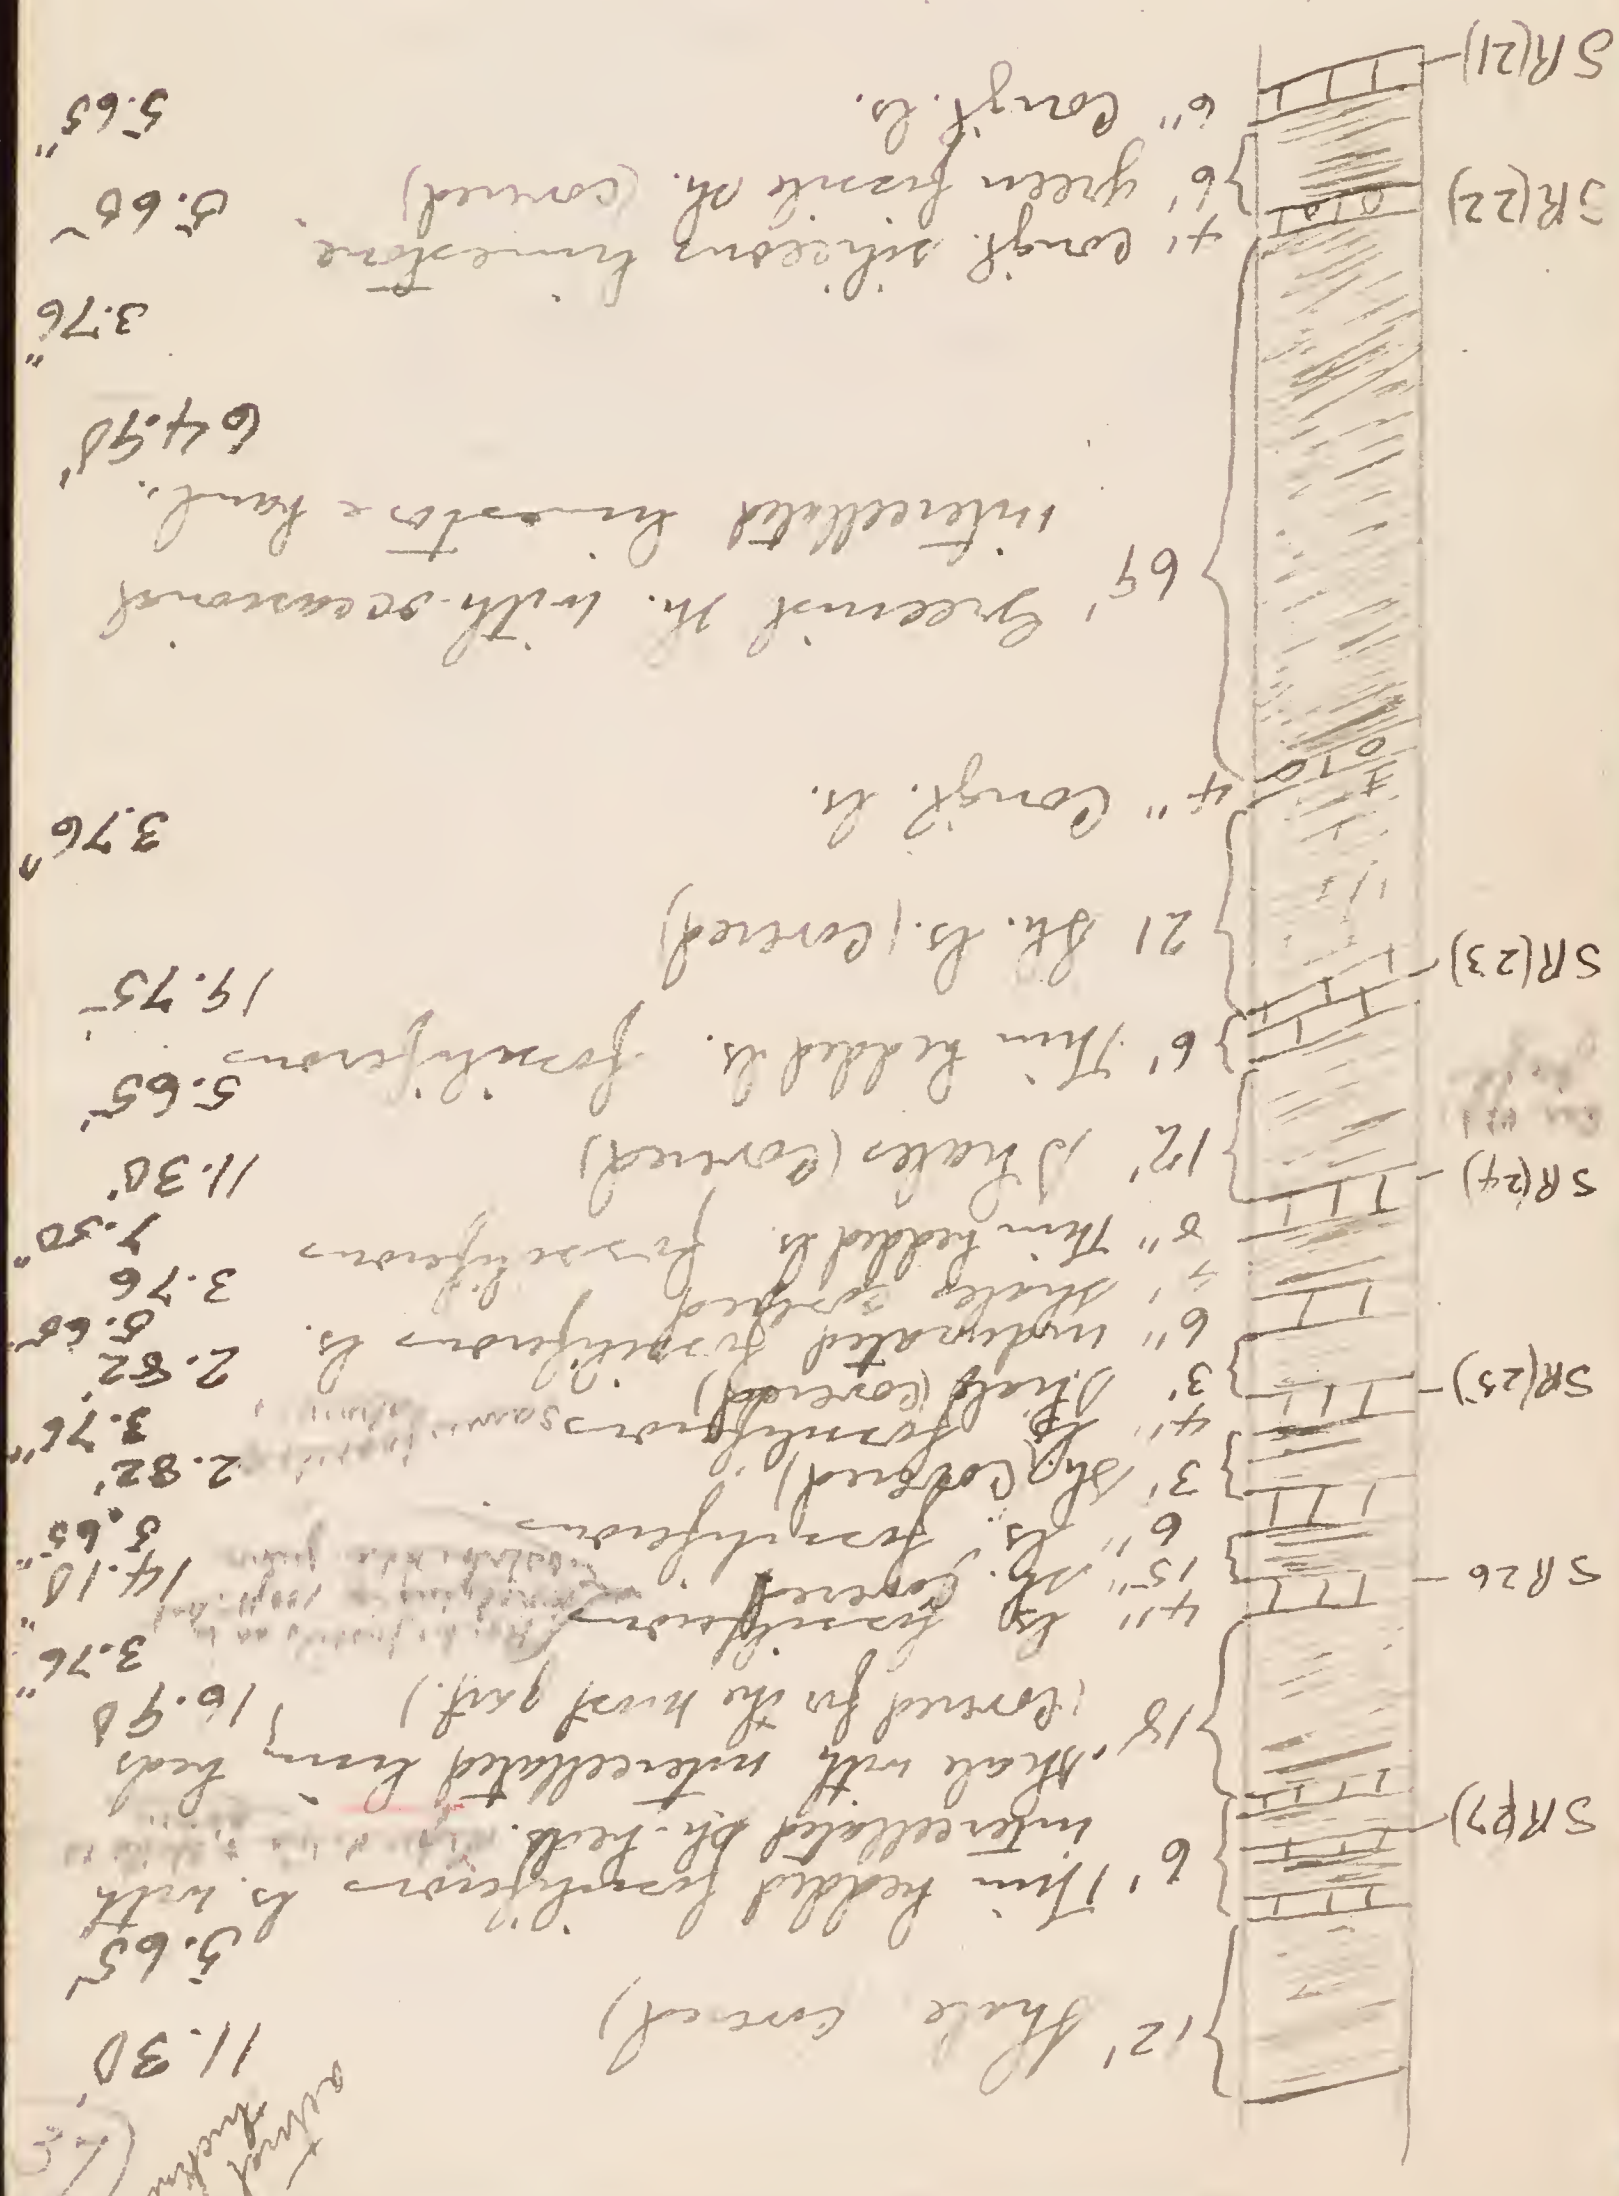 actual
thickn
12' Shale covered) 11.30'
SR(27)
6' Thin bedded fossiliferous ls. with 5.65'
intercellated sh. beds.
18' Shale with intercellated limy beds 16.90
(Covered for the most part.)
SR 26
4" ls fossiliferous 3.76"
15" sh. Covered 14.10"
6" ls. fossiliferous 5.65"
3' sh. Covered) 2.82'
SR(25)
4" ls fossiliferous 3.76"
3' Shale (covered) 2.82'
6" indurated fossiliferous ls. 5.65"
4' Shales covered 3.76
8" Thin bedded ls. fossiliferous 7.50"
SR(24)
12' Shales (Covered) 11.30'
6' Thin bedded ls. fossiliferous 5.65'
SR(23)
21 Sh. ls. (Covered) 19.75'
4" Congl. ls. 3.76"
69' Greenish sh. with occasional
intercellated limestone band. 64.90'
4" Congl. siliceous limestone 3.76"
SR(22)
6' green fissile sh. (covered) 5.65
6" Congl. ls. 5.65"
SR(21)